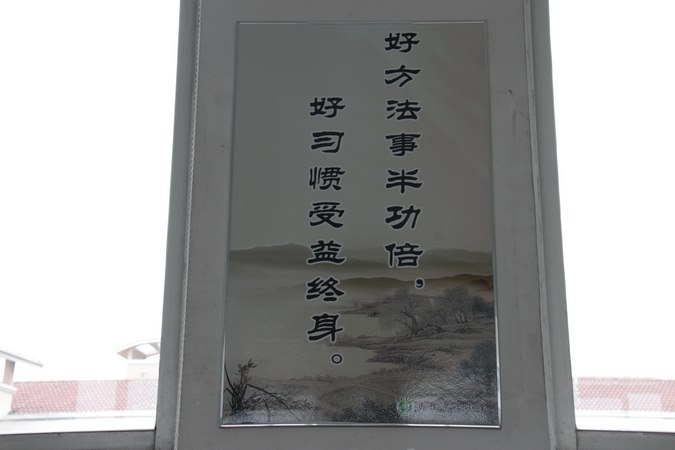 好方法事半功倍，
好习惯受益终身。